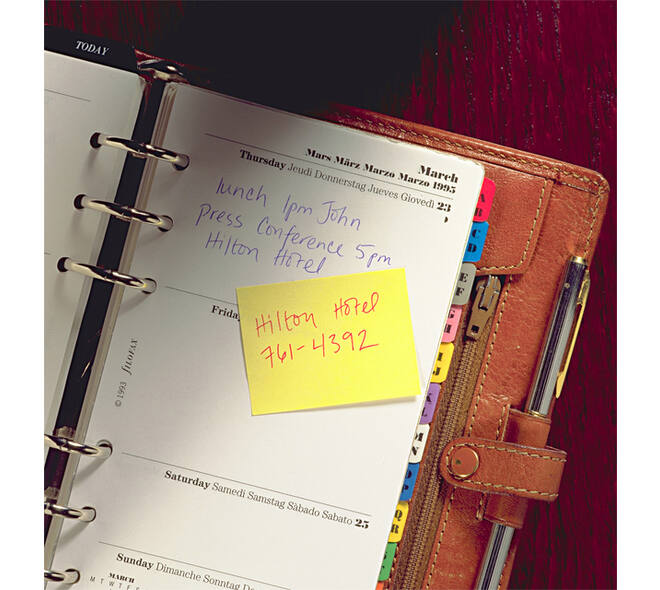 TODAY
March
Mars März Marzo Marzo 1995
Thursday Jeudi Donnerstag Jueves Giovedì 23
lunch 1pm John
Press Conference 5pm
Hilton Hotel
Friday
Hilton Hotel
761-4392
© 1993 FILOFAX
Saturday Samedi Samstag Sàbado Sabato 25
Sunday Dimanche Sonntag
MARCH
M T W T F
A
B
C
D
E
F
M
N
O
P
Q
R